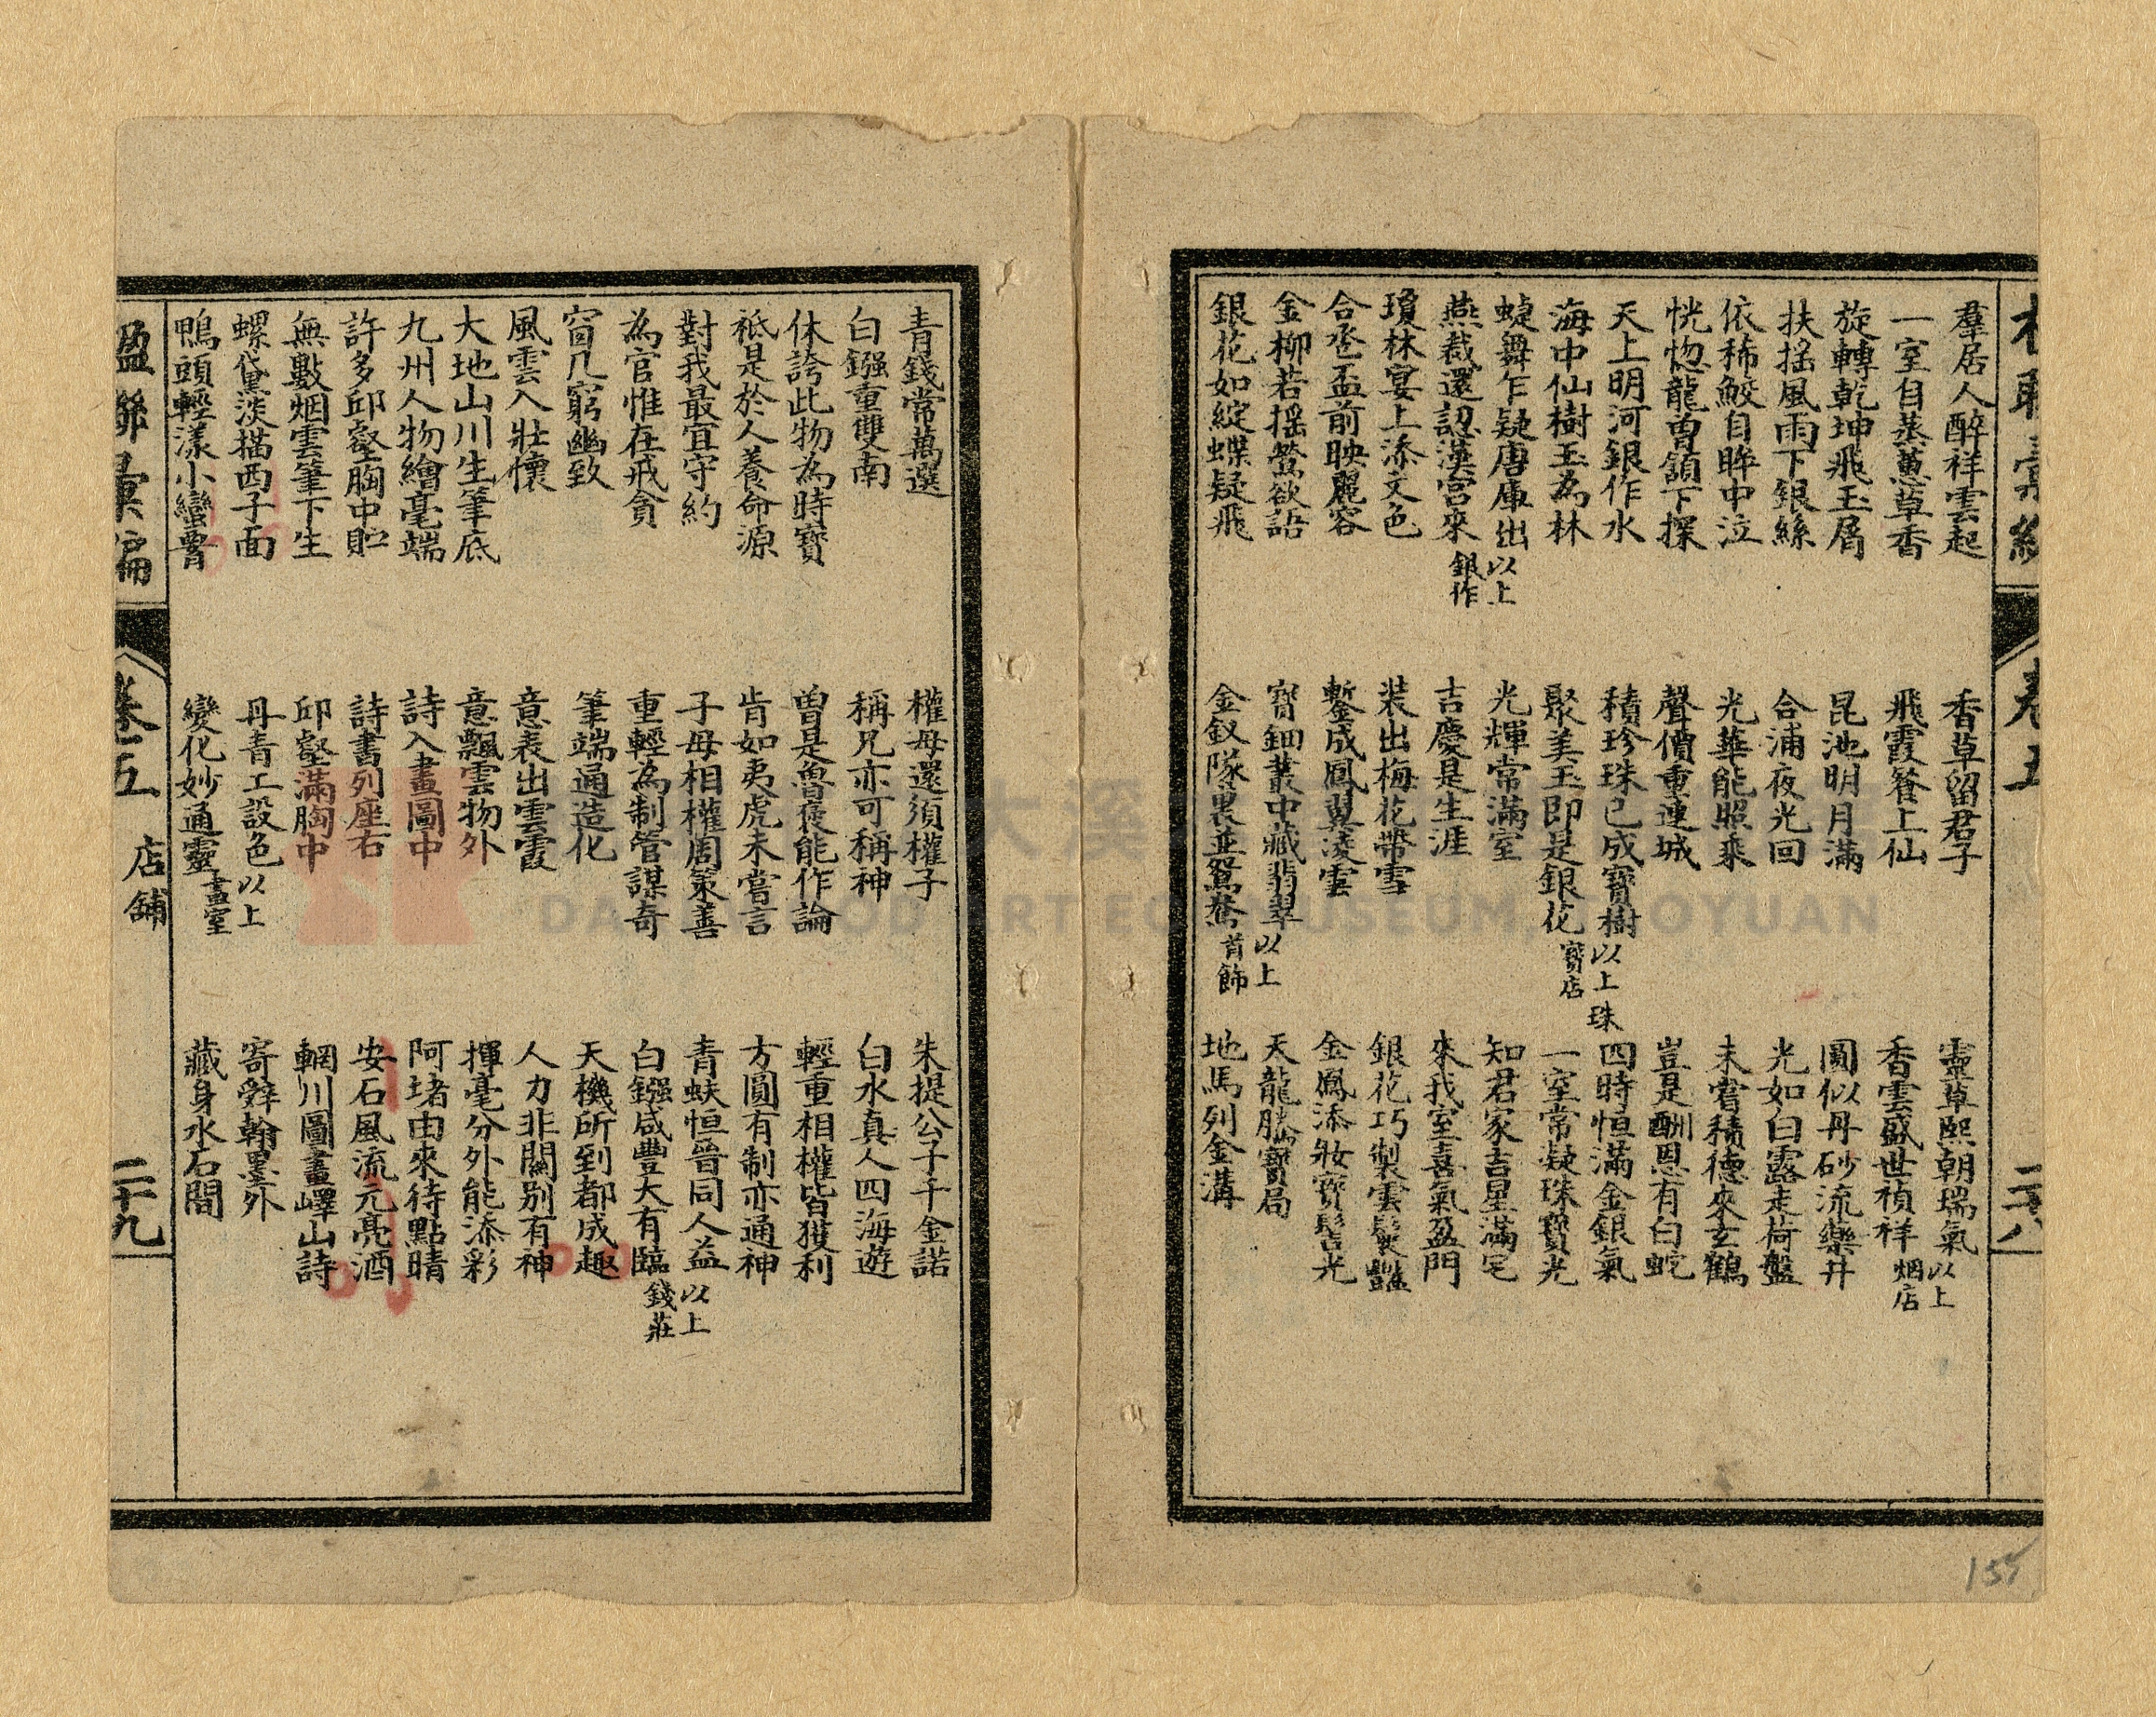 楹聯彙編
卷五
二十八
羣居人醉祥雲起 香草留君子 靈草熙朝瑞氣 以上
一室自蒸蕙草香 飛霞餐上仙 香雲盛世禎祥 烟店
旋轉乾坤飛玉屑 昆池明月滿 圓似丹砂流藥井
扶搖風雨下銀絲 合浦夜光回 光如白露走荷盤
依稀鮫目眸中泣 光華能照乘 未嘗積德來玄鶴
恍惚龍曽頷下探 聲價重連城 豈是酬恩有白蛇
天上明河銀作水 積珍珠已成寶樹 以上珠 四時恒滿金銀氣
海中仙樹玉為林 聚美玉即是銀花 寶店 一室常凝珠寶光
蜨舞乍疑唐庫出 以上 光輝常滿室 知君家吉星滿宅
燕裁還認漢宮來 銀作 吉慶是生涯 來我室喜氣盈門
瓊林宴上添文色 裝出梅花帶雪 銀花巧製雲鬟豔
合卺盃前映麗容 鏨成鳳翼凌雲 金鳳添妝寶髻光
金柳若搖鶯欲語 寶鈿叢中藏翡翠 以上 天龍勝寶局
銀花如綻蝶疑飛 金釵隊裏並鴛鴦 首飾 地馬列金溝
青錢常萬選 權母還須權子 朱提公子千金諾
白鏹重雙南 稱兄亦可稱神 白水真人四海遊
休誇此物為時寶 曽是魯褒能作論 輕重相權皆獲利
祗是於人養命源 肯如夷虎未嘗言 方圓有制亦通神
對我最宜守約 子母相權周策善 青蚨恒晉同人益 以上
為官惟在戒貪 重輕為制管謀奇 白鏹咸豐大有臨 錢莊
窗几窮幽致 筆端通造化 天機所到都成趣
風雲入壯懷 意表出雲霞 人力非關別有神
大地山川生筆底 意飄雲物外 揮毫分外能添彩
九州人物繪毫端 詩入畫圖中 阿堵由來待點睛
許多邱壑胸中貯 詩書列座右 安石風流元亮酒
無數烟雲筆下生 邱壑滿胸中 輞川圖畫嶧山詩
螺黛淡描西子面 丹青工設色 以上 寄舜翰墨外
鴨頭輕漾小蠻膏 變化妙通靈 畫室 藏身水石間
楹聯彙編
卷五 店舖
二十九
155